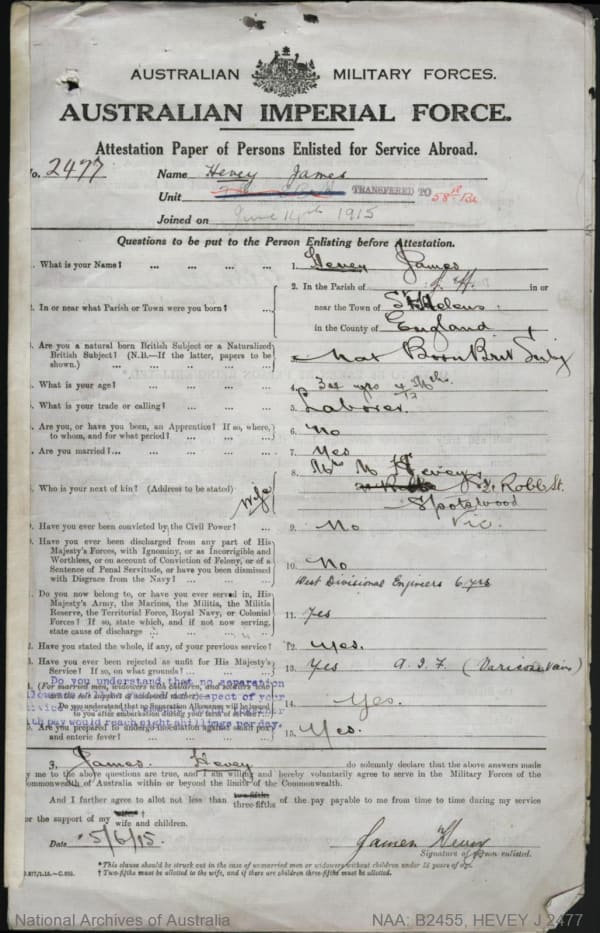 AUSTRALIAN MILITARY FORCES.
AUSTRALIAN IMPERIAL FORCE.
Attestation Paper of Persons Enlisted for Service Abroad.
No. 2477 Name Hevey James
Unit TRANSFERED TO 58th Bn
Joined on June 14th 1915
Questions to be put to the Person Enlisting before Attestation.
. What is your Name? ... ... ... 1. Hevey James
2. In the Parish of in or
. In or near what Parish or Town were you born? ... near the Town of St Helens
in the County of England
. Are you a natural born British Subject or a Naturalized
British Subject? (N.B.—If the latter, papers to be
shown.) ... ... ... Nat Born Brit Subj
. What is your age? ... ... ... 4. 34 yrs 4/12 Mth.
. What is your trade or calling? ... ... ... 5. Laborer.
. Are you, or have you been, an Apprentice? If so, where,
to whom, and for what period? ... ... ... 6. No
. Are you married? ... ... ... ... 7. Yes
8. Mrs M Hevey
. Who is your next of kin? (Address to be stated) wife 2 Robb St.
Spotswood
Vic.
. Have you ever been convicted by the Civil Power? ... 9. No
. Have you ever been discharged from any part of His
Majesty's Forces, with Ignominy, or as Incorrigible and
Worthless, or on account of Conviction of Felony, or of a
Sentence of Penal Servitude, or have you been dismissed
with Disgrace from the Navy? ... ... ... 10. No
West Divisional Engineers 6 yrs
. Do you now belong to, or have you ever served in, His
Majesty's Army, the Marines, the Militia, the Militia
Reserve, the Territorial Force, Royal Navy, or Colonial
Forces? If so, state which, and if not now serving,
state cause of discharge ... ... ... 11. Yes
. Have you stated the whole, if any, of your previous service? 12. Yes.
. Have you ever been rejected as unfit for His Majesty's
Service? If so, on what grounds? ... ... 13. Yes A.I.F. (Varicose Vains)
Do you understand that no separation
(For married men, widowers with children, and soldiers who
are the sole support of widowed mother)
respect of your
Do you understand that no Separation Allowance will be issued
to you after embarkation during your term of service? 14. Yes.
pay would reach eight shillings per day.
. Are you prepared to undergo inoculation against small pox
and enteric fever? ... ... ... 15. Yes.
I, James Hevey do solemnly declare that the above answers made
by me to the above questions are true, and I am willing and hereby voluntarily agree to serve in the Military Forces of the
Commonwealth of Australia within or beyond the limits of the Commonwealth.
And I further agree to allot not less than two-fifths three-fifths of the pay payable to me from time to time during my service
for the support of my wife † wife and children.
Date 5/6/15. James Hevey
Signature of person enlisted.
* This clause should be struck out in the case of unmarried men or widowers without children under 16 years of age.
† Two-fifths must be allotted to the wife, and if there are children three-fifths must be allotted.
National Archives of Australia NAA: B2455, HEVEY J 2477